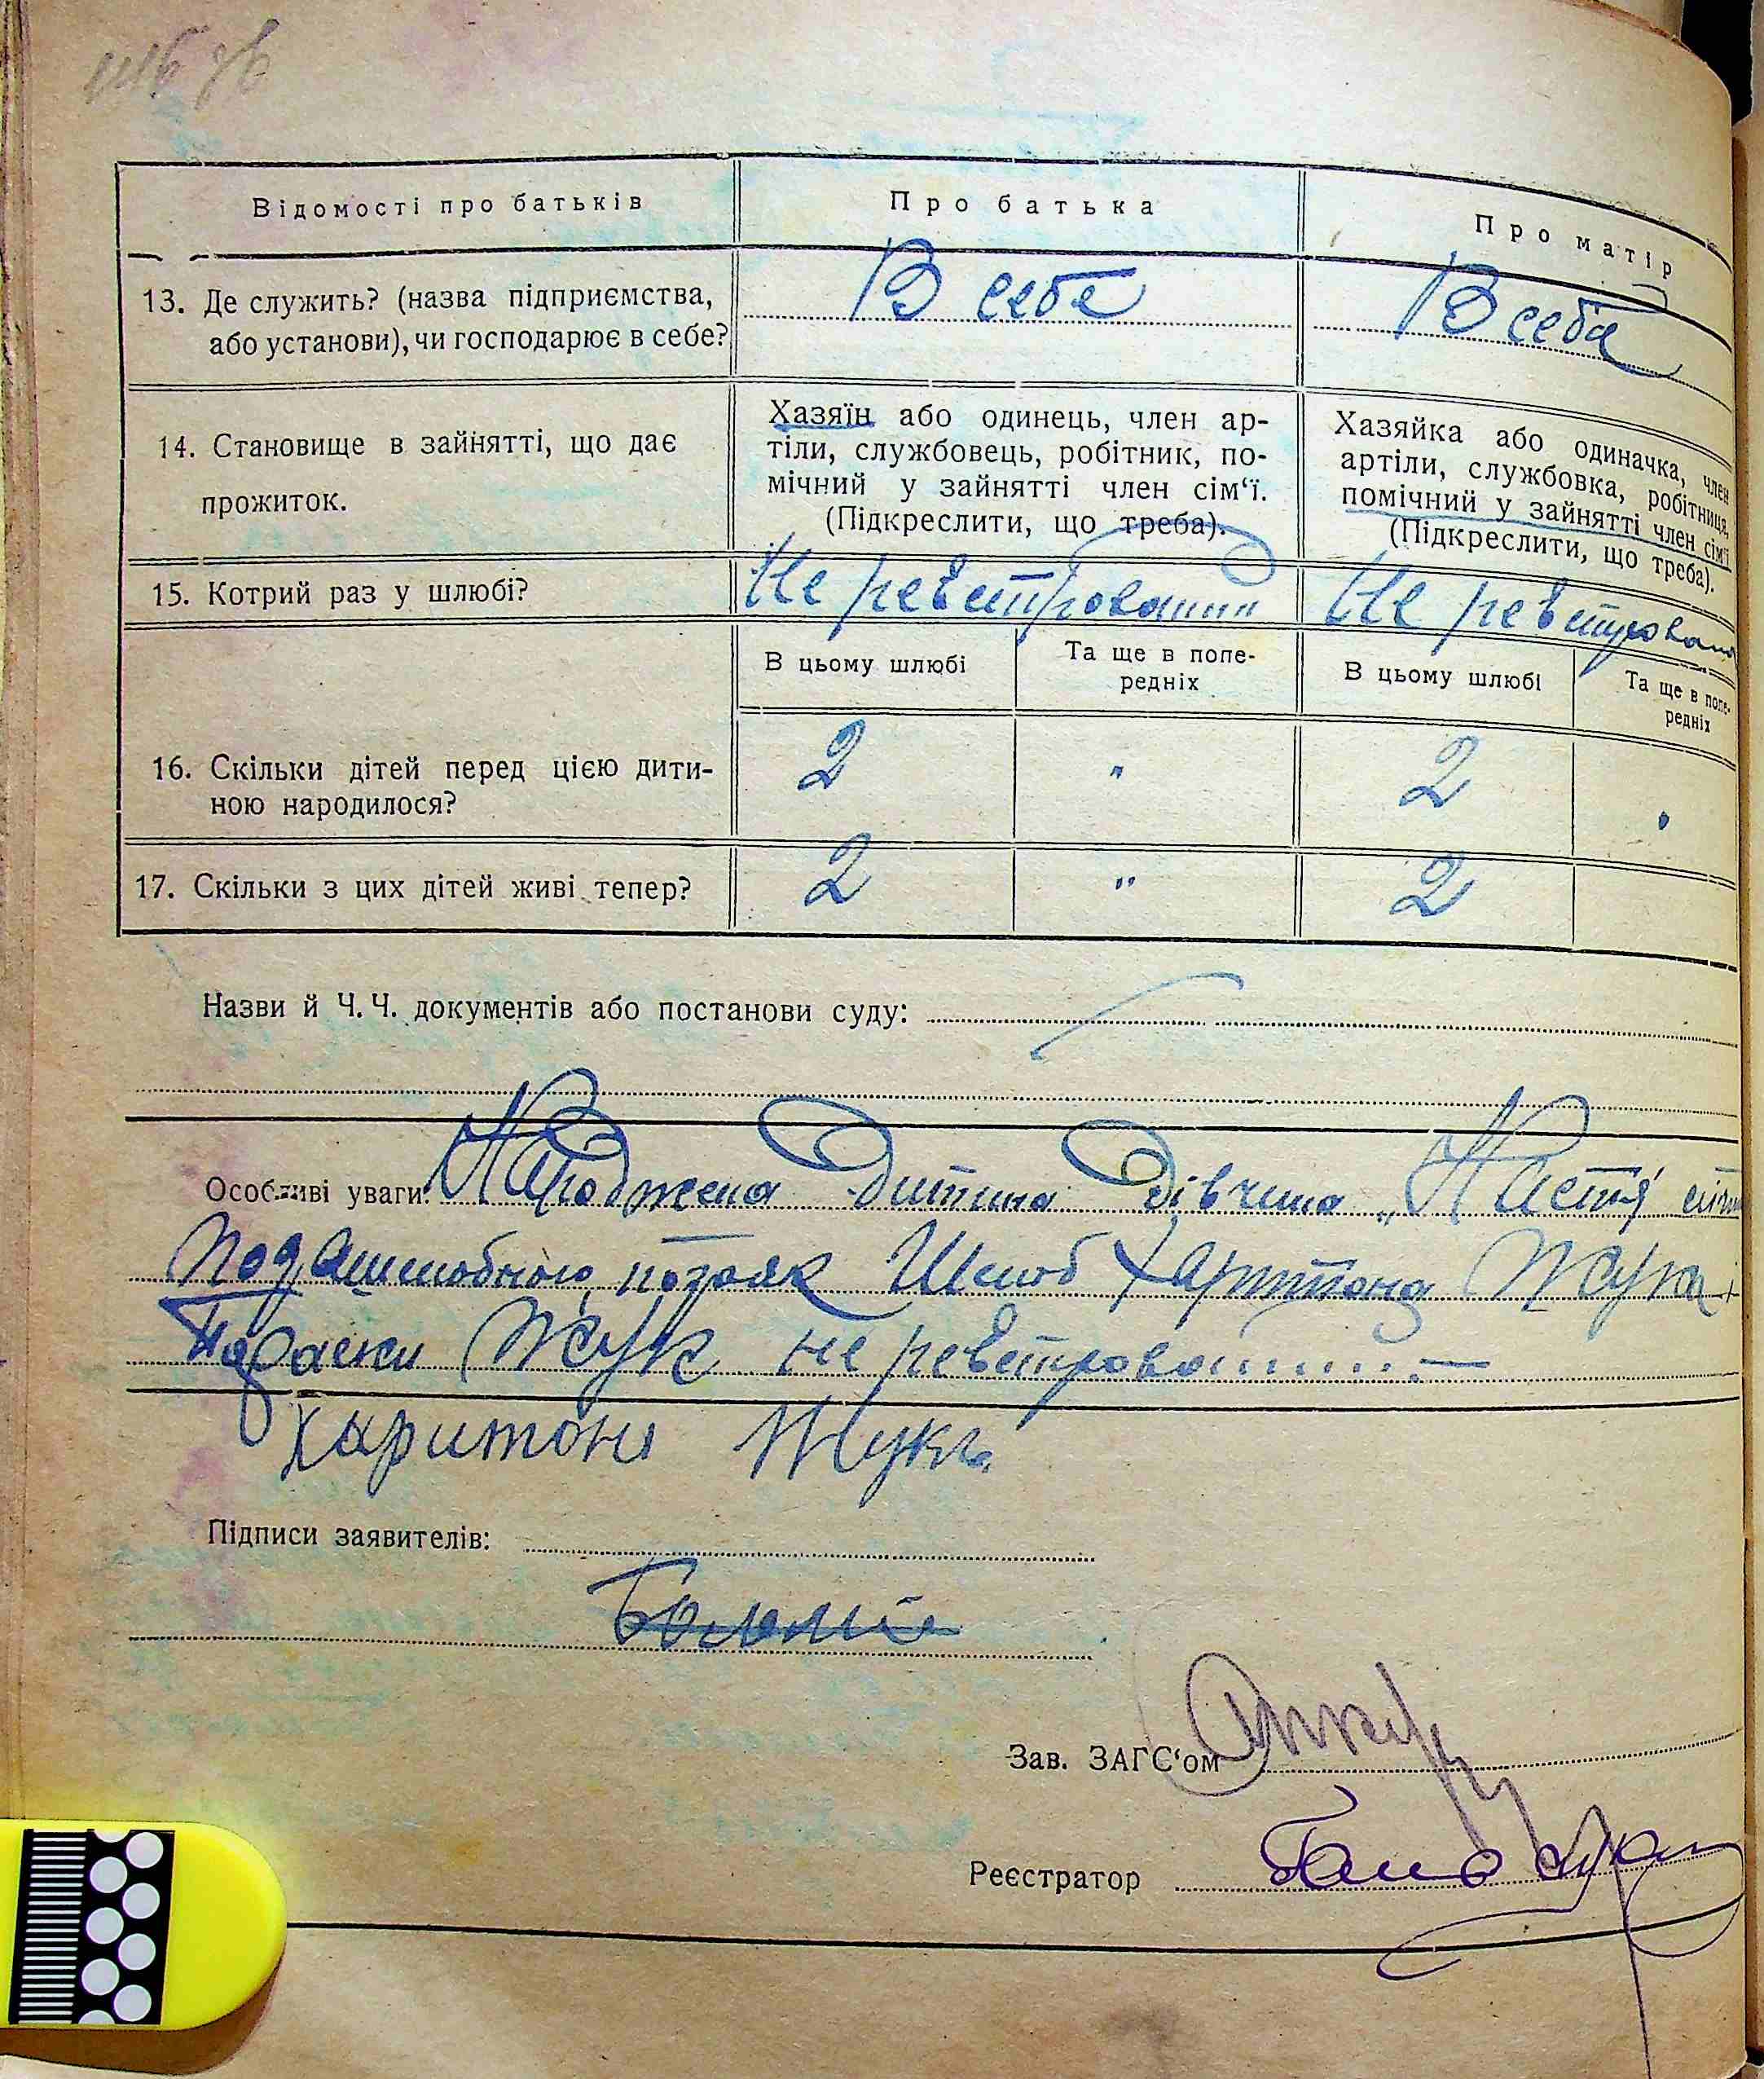 Відомості про батьків
Про батька
Про матір
13. Де служить? (назва підприємства,
або установи), чи господарює в себе?
В себе
В себе
14. Становище в зайнятті, що дає
прожиток.
Хазяїн або одинець, член ар-
тіли, службовець, робітник, по-
мічний у зайнятті член сім‘ї.
(Підкреслити, що треба).
Хазяйка або одиначка, член
артіли, службовка, робітниця,
помічний у зайнятті член сім‘ї.
(Підкреслити, що треба).
15. Котрий раз у шлюбі?
Не
Не
В цьому шлюбі
Та ще в попе-
редніх
В цьому шлюбі
Та ще в попе-
редніх
16. Скільки дітей перед цією дити-
ною народилося?
2 " 2
17. Скільки з цих дітей живі тепер?
2 " 2
Назви й Ч. Ч. документів або постанови суду:
Особливі уваги: Народжена дитина дівчина „Настя"
Шлюб Харитона Жука і
Параски Жук не
Харитон Жук
Підписи заявителів:
Зав. ЗАГС‘ом
Реєстратор